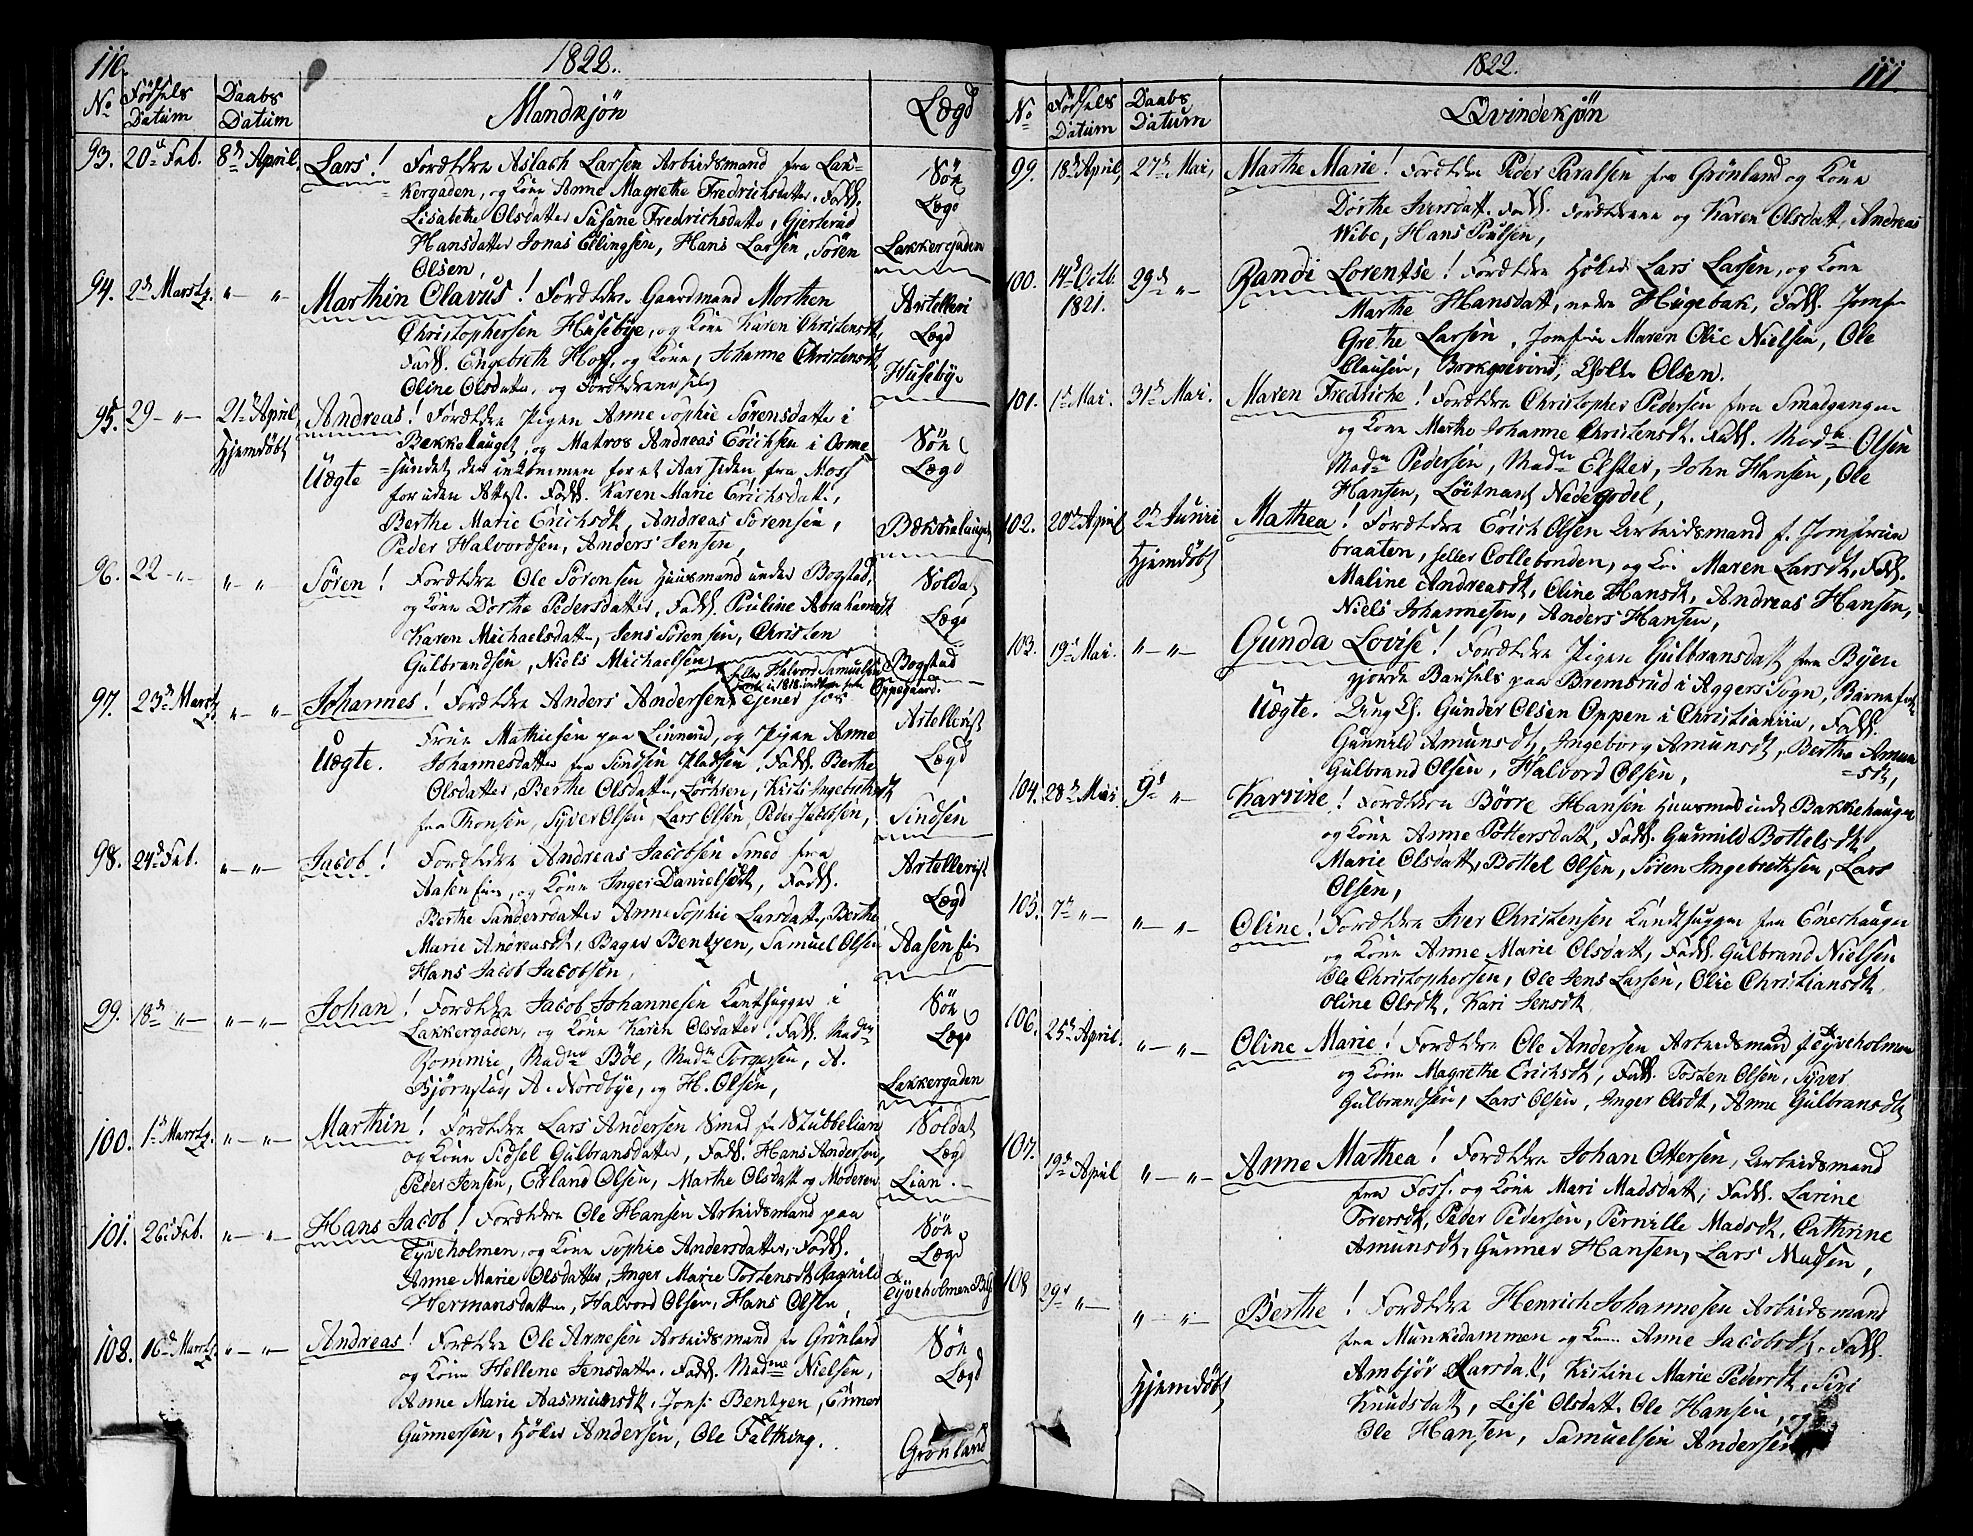 110.
1822.
No Fødsels Datum Daabs Datum Mandkjøn Lægd
93. 20de Feb. 8de April, Lars! Forældre Aslach Larsen Arbeidsmand fra Lak-
kergaden, og Kone Anne Magrethe Fredrichsdatter. Fadd.
Lisabethe Olsdatter Susane Fredrichsdatte, Gjertrud
Hansdatter Jonas Ellingsen, Hans Larsen, Søren
Olsen,
Søe Lægd Lakkergaden
94. 2de Marts " — " Marthin Olavus! Forældre Gaardmand Morthen
Christophersen Husebye, og Kone Karen Christensdt,
Fadd. Engebreth Hoff, og Kone, Johanne Christensdt,
Oline Olsdatter, og Forældrene selv,
Artelleri Lægd Husebye
95. 29 — " — 21de April, Hjemdøbt Andreas! Forældre Pigen Anne Sophie Sørensdatter i
Bækkelauget, og Matros Andreas Erichsen i Orme-
Uægte =sundet, der inkommen for et Aar siden fra Moss
foruden Attest. Fadd. Karen Marie Erichsdatte,
Berthe Marie Erichsdt, Andreas Sørensen,
Peder Halvordsen, Anders Jensen,
Søe Lægd Bækkelauget
96. 22 — " — " — " Søren! Forældre Ole Sørensen Huusmand under Bogstad,
og Kone Dorthe Pedersdatter, Fadd. Pouline Abrahamsdt
Karen Michaelsdatter, Jens Sørensen, Christen
Gulbrandsen, Niels Michaelsen,
Soldat Lægd Bogstad
97. 23de Marts " — " Johannes! Forældre Anders Andersen Tjener hos
eller Halvord Samuelsen Oppegaard.
Frue Mathiesen paa Linnerud, og Pigen Anne
Uægte. Johannesdatter fra Sindsen Pladsen, Fadd. Berthe
Olsdatter, Berthe Olsdatter, Kirsti Ingebrethsdt
fra Thonsen, Syver Olsen Lars Olsen, Peder Jacobsen,
Artellerist Lægd Sindsen
98. 24de Feb. " — " — Jacob! Forældre Andreas Jacobsen Smed fra
Aasen, og Kone Inger Danielsdt, Fadd.
Berthe Sandersdatter Anne Sophie Larsdatte, Berthe
Marie Andreasdt, Bager Bentzen, Samuel Olsen
Hans Jacob Jacobsen,
Artellerist Lægd Aasen
99. 18de " — " — " — Johan! Forældre Jacob Johannesen Kanthugger i
Lakkergaden, og Kone Karen Olsdatter! Fadd. Madme
Rommie, Madme Böe, Madme Torgersen, A.
Bjørnstag, A. Nordbye, og H. Olsen,
Søe Lægd Lakkergaden
100. 1ste Marts. " — " — Marthin! Forældre Lars Andersen Smed fr Stubbelian
og Kone Sidsel Gulbransdatter, Fadd. Hans Andersen,
Peder Jensen, Erland Olsen, Marthe Olsdatt og Moderen
Soldat Lægd Lian.
101. 26de Feb. " — " — Hans Jacob! Forældre Ole Hansen Arbeidsmand paa
Tyveholmen, og Kone Sophie Andersdatter, Fadd.
Anne Marie Olsdatter, Inger Marie Tostensdt Ragnild
Hermansdatter, Halvord Olsen, Hans Olsen,
Søe Lægd Tyveholmen
108. 16de Marts " — " — Andreas! Forældre Ole Arnesen Arbeidsmand fr Grønland
og Kone Hellene Jensdatter, Fadd. Madme Nielsen,
Anne Marie Aasmundsdt, Bentzen, Gunner
Gunnersen, Høker Andersen, Ole Faltking.
Søe Lægd Grønland
1822.
111.
No Fødsels Datum Daabs Datum Qvindekjøn
99. 18de April, 27de Mai, Marthe Marie! Forældre Peder Paralsen fra Grønland og Kone
Dorthe Iversdatt. Fadd. Forældrene og Karen Olsdatt, Andreas
Wibe, Hans Poulsen,
100. 14de Octb. 1821. 29de " — Randi Lorentse! Forældre Høker Lars Larsen, og Kone
Marthe Hansdatt, Fadd. Jomfr
Grethe Larsen, Jomfrue Maren Olie Nielsen, Ole
Clausen, Olsen.
101. 1ste Mai. 31te Mai. Maren Fredriche! Forældre Christopher Pedersen fra Smadgangen
og Kone Marthe Johanne Christensdt. Fadd. Madme Olsen
Madme Pedersen, Madme Elster, John Hansen, Ole
Hansen, Løitnant Nedergodel,
102. 20de April 2den Junii Hjemdøbt Mathea! Forældre Erich Olsen Arbeidsmand f. Jomfrue
braaten, heller Collebonden, og Ko. Maren Larsdt, Fadd.
Maline Andreasdt, Oline Hansdt, Andreas Hansen,
Niels Johannesen, Anders Hansen,
103. 19de Mai. " — " — Gunda Lovise! Forældre Pigen Gulbransdatt fra Byen
gjorde Barsels paa Bremsrud i Aggers Sogn, Barnefader
Uægte. Ung K. Gunder Olsen Oppen i Christiania, Fadd.
Gunnild Amunsdt, Ingeborg Amunsdt, Berthe Amun-
=sdt,
Gulbrand Olsen, Halvord Olsen,
104. 28de Mai 9de " — Karrine! Forældre Börre Hansen Huusmand i Bakkehaugen
og Kone Anne Pottersdatt, Fadd. Gunnild Bottelsdt,
Marie Olsdatt, Bottel Olsen, Søren Ingebrethsen, Lars
Olsen,
105. 7de " — " — " — Oline! Forældre Iver Christensen Kanthugger fra Enerhaugen
og Kone Anne Marie Olsdatt, Fadd. Gulbrand Nielsen
Ole Christophersen, Ole Jens Larsen, Olie Christiansdt,
Oline Olsdt, Kari Jensdt,
106. 25de April. " — " — Oline Marie! Forældre Ole Andersen Arbeidsmand f Tyveholmen
og Kone Magrethe Erichsdt, Fadd. Tosten Olsen, Syver
Gulbrandsen, Lars Olsen, Inger Olsdt, Anne Gulbransdt
107. 19de April " — " — Anne Mathea! Forældre Johan Ottersen, Arbeidsmand
fra Foss. og Kone Mari Madsdatt, Fadd. Larine
Torersdt, Peder Pedersen, Pernille Madsdt, Cathrine
Amunsdt, Gunner Hansen, Lars Madsen,
108 29de " — " — " — Hjemdøbt Berthe! Forældre Henrich Johannesen Arbeidsmand
fra Munkedammen og Kone Anne Jacobsdt, Fadd.
Ambjør Larsdatt, Kirstine Marie Pedersdt, Siri
Knudsdatt, Lise Olsdatt. Ole Hansen, og
Ole Hansen, Samuelsen Andersen